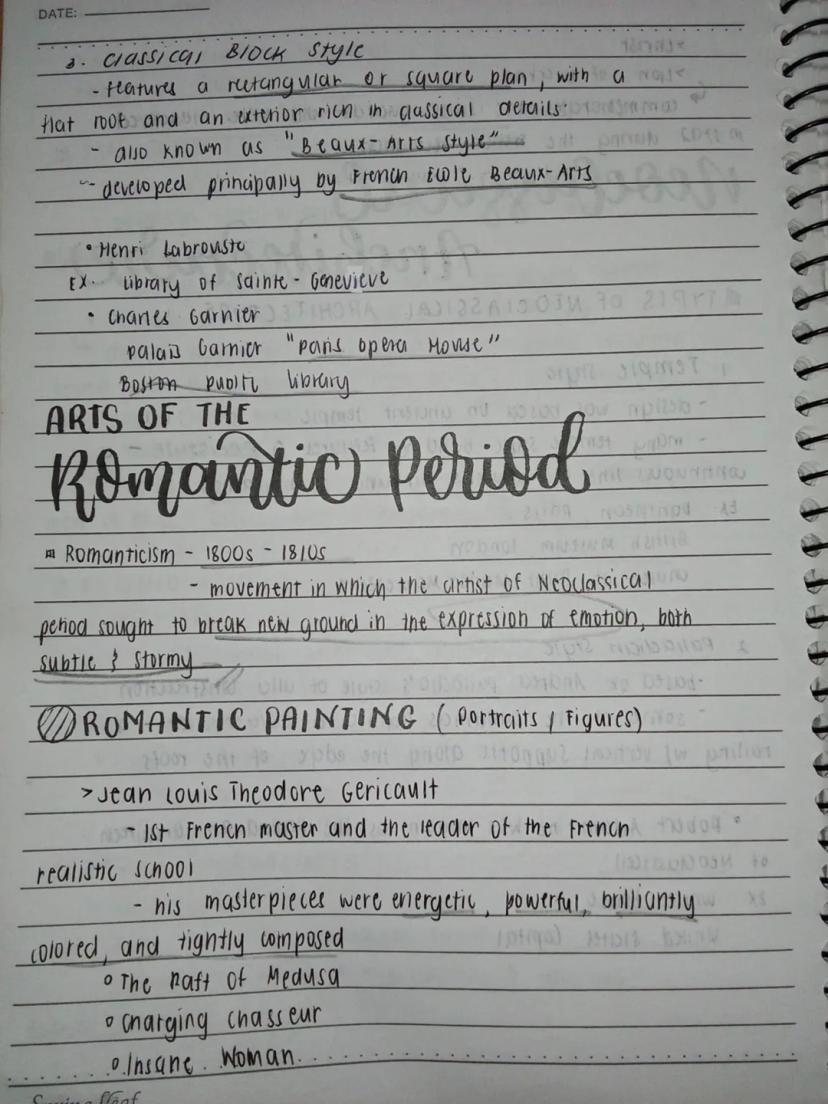 DATE:
3. Classical Block Style
- features a rectangular or square plan, with a
flat roof and an exterior rich in classical details.
- also known as "Beaux-Arts Style"
- developed principally by French Ecole Beaux-Arts
• Henri Labrouste
EX. library of Sainte-Genevieve
• Charles Garnier
Palais Garnier "Paris Opera House"
Boston Public library
ARTS OF THE
Romantic Period
Romanticism - 1800s - 1810s
- movement in which the artist of Neoclassical
period sought to break new ground in the expression of emotion, both
subtle & stormy
ROMANTIC PAINTING (Portraits / Figures)
> Jean Louis Theodore Gericault
- 1st French master and the leader of the French
realistic school
- his masterpieces were energetic, powerful, brilliantly
colored, and tightly composed
° The Raft of Medusa
° Charging Chasseur
° Insane Woman